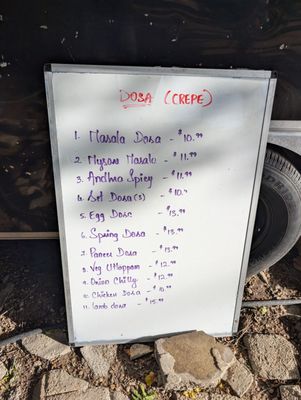 DOSA (CREPE)
1. Masala Dosa - $10.99
2. Mysore Masala - $11.99
3. Andhra Spicy - $11.99
4. Set Dosa(3) - $10.99
5. Egg Dosa - $13.99
6. Spring Dosa - $13.99
7. Paneer Dosa - $13.99
8. Veg Uttappam - $12.99
9. Onion Chilly - $12.99
10. Chicken Dosa - $10.99
11. Lamb dosa - $15.99